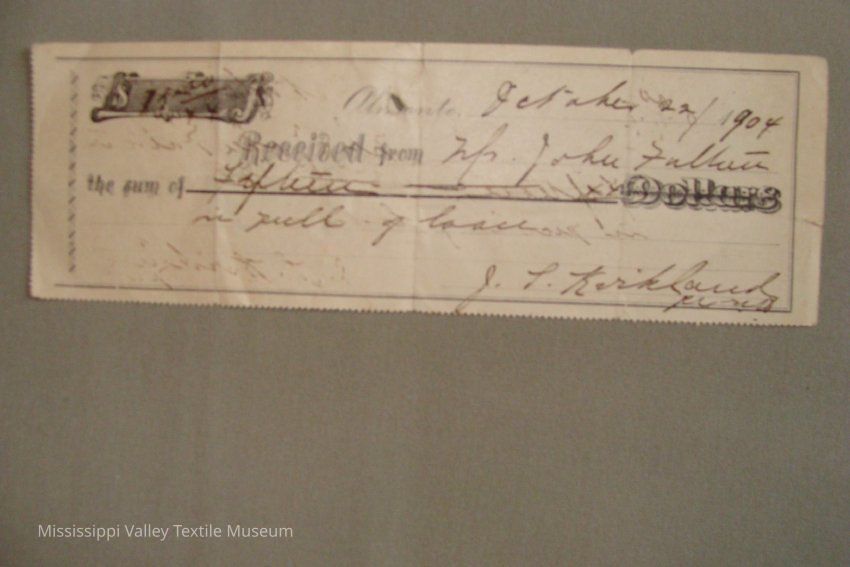 $ 15 00/xx Almonte, October 22/ 1904
Received from Mr. John Fulton
the sum of Fifteen Dollars
in full of loan
J. T. Kirkland
Mississippi Valley Textile Museum